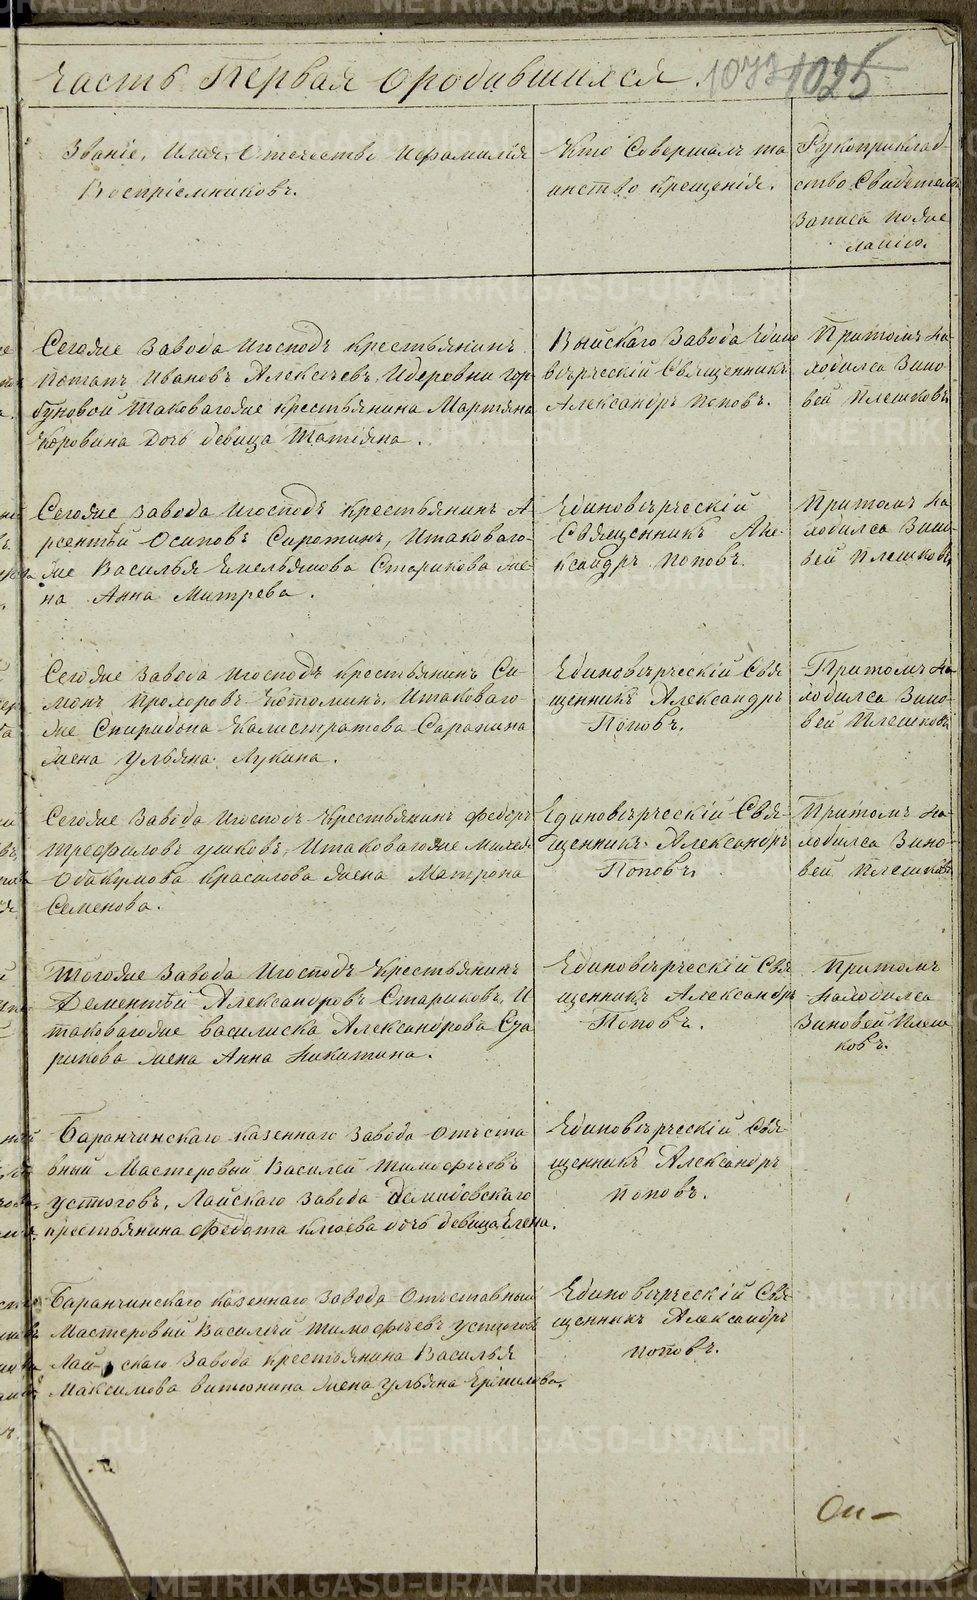 Часть Первая о родившихся. 1025
Званіе, Имя, Отечество и Фамилія
Воспріемниковъ.
Кто Совершалъ та
инство крещенія.
Рукоприклад
ство Свидетелей
Записи по же
ланію.
Сего же Завода Господъ крестьянинъ
Потапъ Ивановъ Алексеевъ, и деревни Гор
буновой таковаго же крестьянина Мартяна
Коровина дочь девица Татіяна.
Выйскаго Завода Едино
вѣрческій Священникъ
Александръ Поповъ.
При томъ на
ходился Зино
вей Плешковъ
Сего же Завода Господъ крестьянинъ А
рсентьй Осиповъ Сиротинъ, и таковаго
же Василья Емельянова Старикова же
на Анна Митрева.
Единовѣрческій
Священникъ Але
ксандръ Поповъ.
При томъ на
ходился Зино
вей Плешковъ
Сего же Завода Господъ крестьянинъ Си
монъ Прохоровъ Котоминъ, и таковаго
же Спиридона Калистратова Сарапина
жена Ульяна Лукина.
Единовѣрческій Свя
щенникъ Александръ
Поповъ.
При томъ на
ходился Зино
вей Плешковъ
Сего же Завода Господъ Крестьянинъ Федоръ
Трефиловъ Ушковъ, и таковаго же Михея
Обакумова Красилова жена Матрона
Семенова.
Единовѣрческій Свя
щенникъ Александръ
Поповъ
При томъ на
ходился Зино
вей Плешковъ
Того же Завода Господъ Крестьянинъ
Дементьй Александровъ Стариковъ, и
таковаго же Василиска Александрова Ста
рикова жена Анна Никитина.
Единовѣрческій Свя
щенникъ Александръ
Поповъ.
При томъ
находился
Зиновей Плеш
ковъ.
Баранчинскаго казеннаго Завода Отъста
вный Мастеровый Василей Тимофѣевъ
Устюговъ, Лайскаго Завода Демидовскаго
крестьянина Федота Клюева дочь девица Елена.
Единовѣрческій Свя
щенникъ Александръ
Поповъ.
Баранчинскаго казеннаго Завода Отъставный
Мастеровый Василѣй Тимофѣевъ Устюговъ
Лайскаго Завода крестьянина Василья
Максимова Витюнина жена Ульяна Ерпилова.
Единовѣрческій Свя
щенникъ Александръ
Поповъ.
METRIKI.GASO-URAL.RU